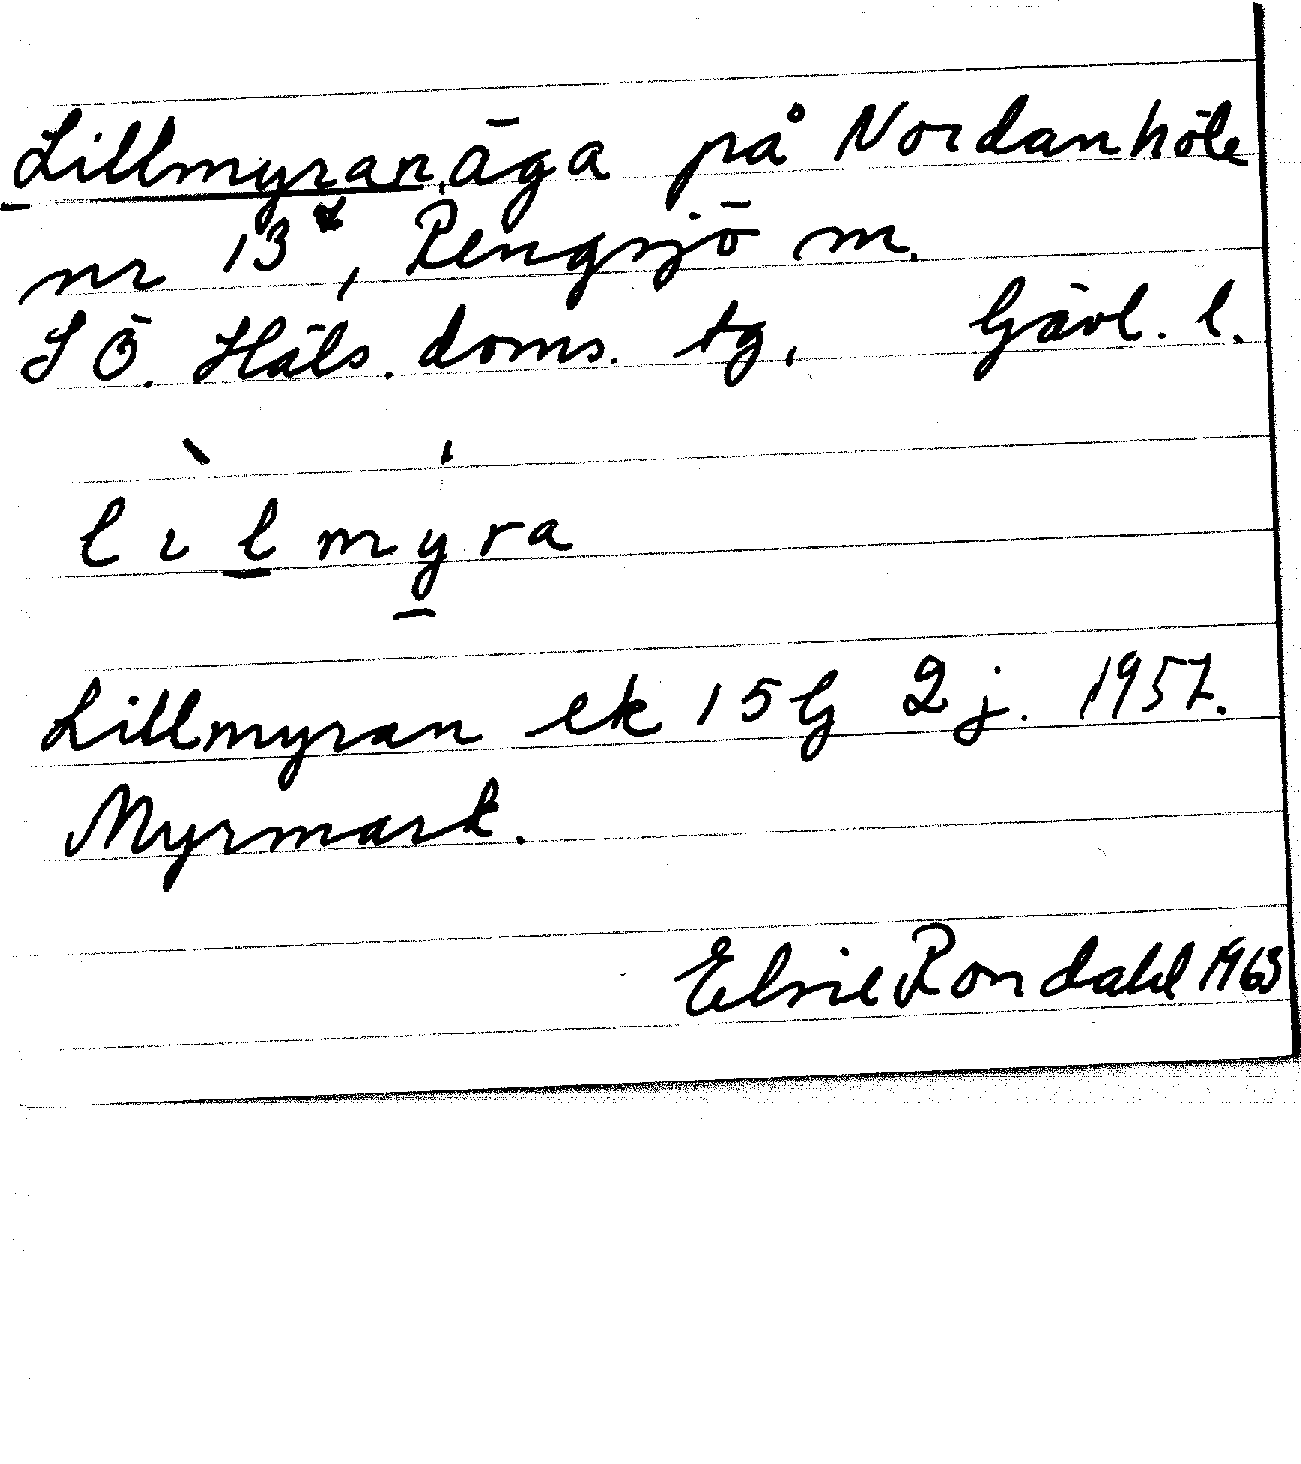 Lillmyran, äga på Nordanhöle
nr 13², Rengsjö m.
S Ö. Häls. doms. tg, Gävl. l.
lılmyra
Lillmyran ek 15 G 2 j. 1957.
Myrmark.
Elsie Rondahl 1963